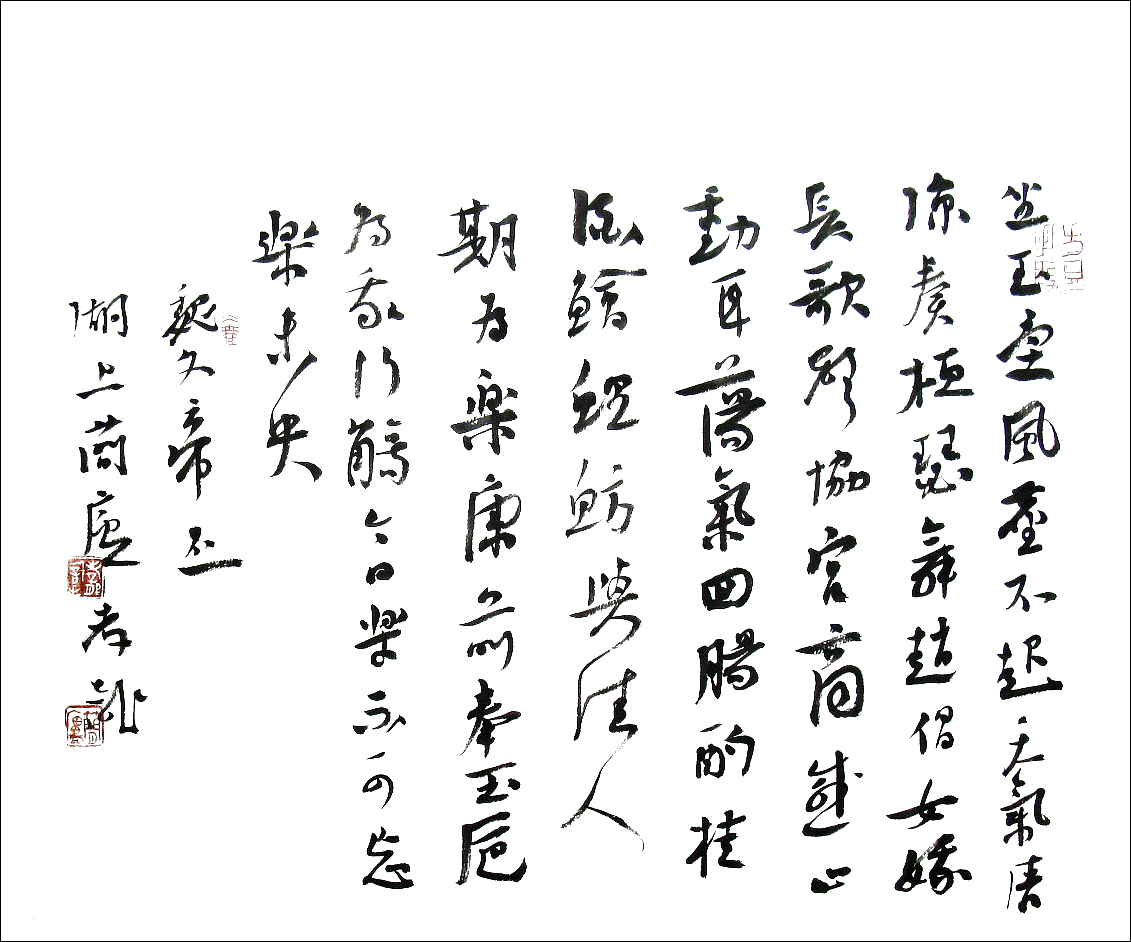 坐玉堂風塵不起天氣清
涼奏桓瑟舞趙倡女娥
長歌聲協宮商感心
動耳蕩氣回腸酌桂
酒鱠鯉魴與佳人
期為樂康前奉玉卮
為我行觴今日樂不可忘
樂未央
魏文帝丕
湖上簡廬孝